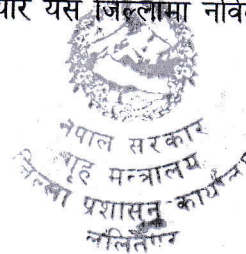 यार यस जिल्लामा नवि
नेपाल सरकार
गृह मन्त्रालय
जिल्ला प्रशासन कार्यालय
ललितपुर